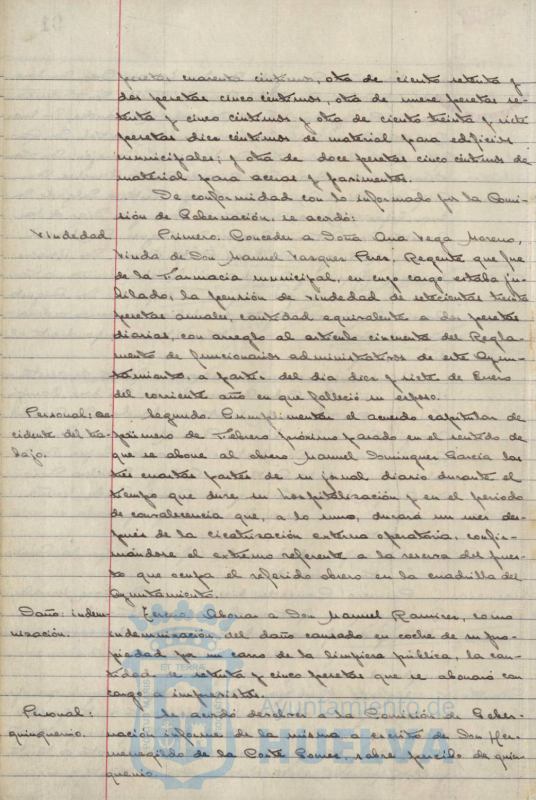 pesetas cuarenta céntimos, otra de ciento setenta y
dos pesetas cinco céntimos, otra de nueve pesetas se-
tenta y cinco céntimos y otra de ciento treinta y siete
pesetas diez céntimos de material para edificios
municipales; y otra de doce pesetas cinco céntimos de
material para aceras y pavimentos.
De conformidad con lo informado por la Comi-
sión de Gobernación, se acordó:
Viudedad
Primero. Conceder a Doña Ana Vega Moreno,
viuda de Don Manuel Vazquez Perez, Regente que fue
de la Farmacia municipal, en cuyo cargo estaba ju-
bilado, la pensión de viudedad de setecientas treinta
pesetas anuales, cantidad equivalente a dos pesetas
diarias, con arreglo al artículo cincuenta del Regla-
mento de funcionarios administrativos de este Ayun-
tamiento, a partir del dia diez y siete de Enero
del corriente año en que falleció su esposo.
Personal: ac-
cidente del tra-
bajo.
Segundo. Cumplimentar el acuerdo capitular de
primero de Febrero próximo pasado en el sentido de
que se abone al obrero Manuel Dominguez García las
tres cuartas partes de su jornal diario durante el
tiempo que dure su hospitalización y en el periodo
de convalecencia que, a lo sumo, durará un mes des-
pués de la cicatrización externa operatoria, confir-
mándose el extremo referente a la reserva del pues-
to que ocupa el referido obrero en la cuadrilla del
Ayuntamiento.
Daño: indem-
nización.
Tercero. Abonar a Don Manuel Ramirez, como
indemnización del daño causado en coche de su pro-
piedad por un carro de la limpieza pública, la can-
tidad de setenta y cinco pesetas que se abonará con
cargo a imprevistos.
Personal:
quinquenio.
Se acordó devolver a la Comisión de Gober-
nación informe de la misma a escrito de Don Her-
menegildo de la Corte Gomez, sobre percibo de quin-
quenio.
Ayuntamiento de
HUELVA